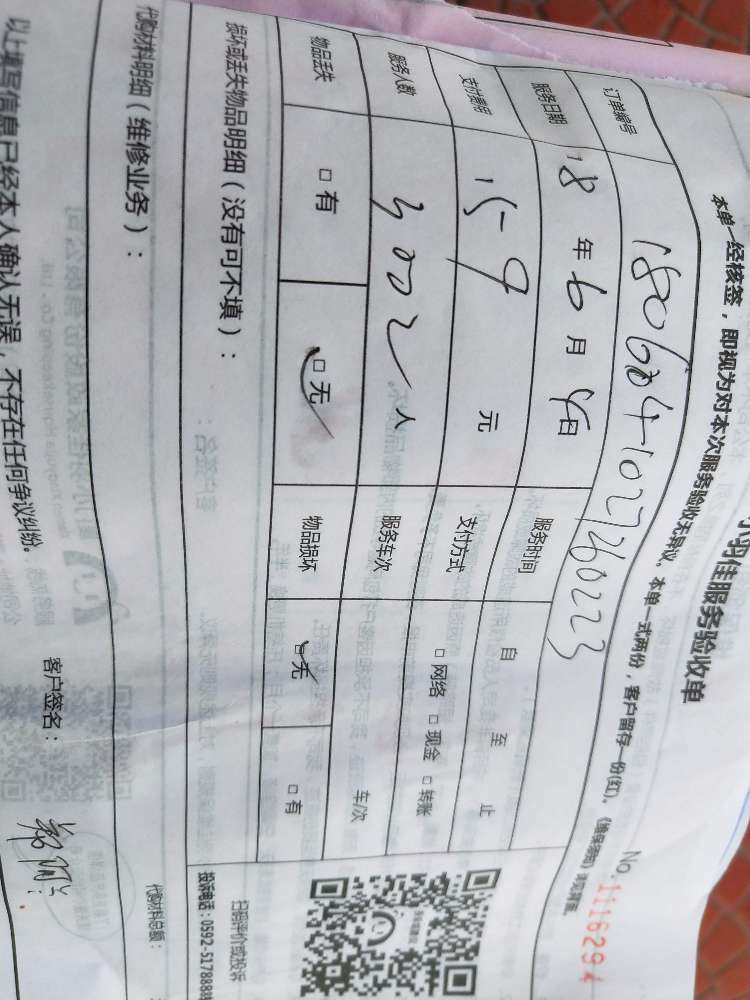 佳服务验收单
No. 1116294
本单一经核签，即视为对本次服务验收无异议。本单一式两份，客户留存一份(红)。
订单编号
服务日期 18 年 6 月 4 日 服务时间 自 至 止
支付费用 159 元 支付方式 □ 网络 □ 现金 □ 转账
服务人数 人 服务车次 车次
物品丢失 □ 有 □ 无 物品损坏 □ 无 □ 有
损坏或丢失物品明细（没有可不填）：
扫码评价或投诉
投诉电话：0592-517888
代购材料明细（维修业务）：
代购材料总额：
以上填写信息已经本人确认无误，不存在任何争议纠纷。
客户签名：